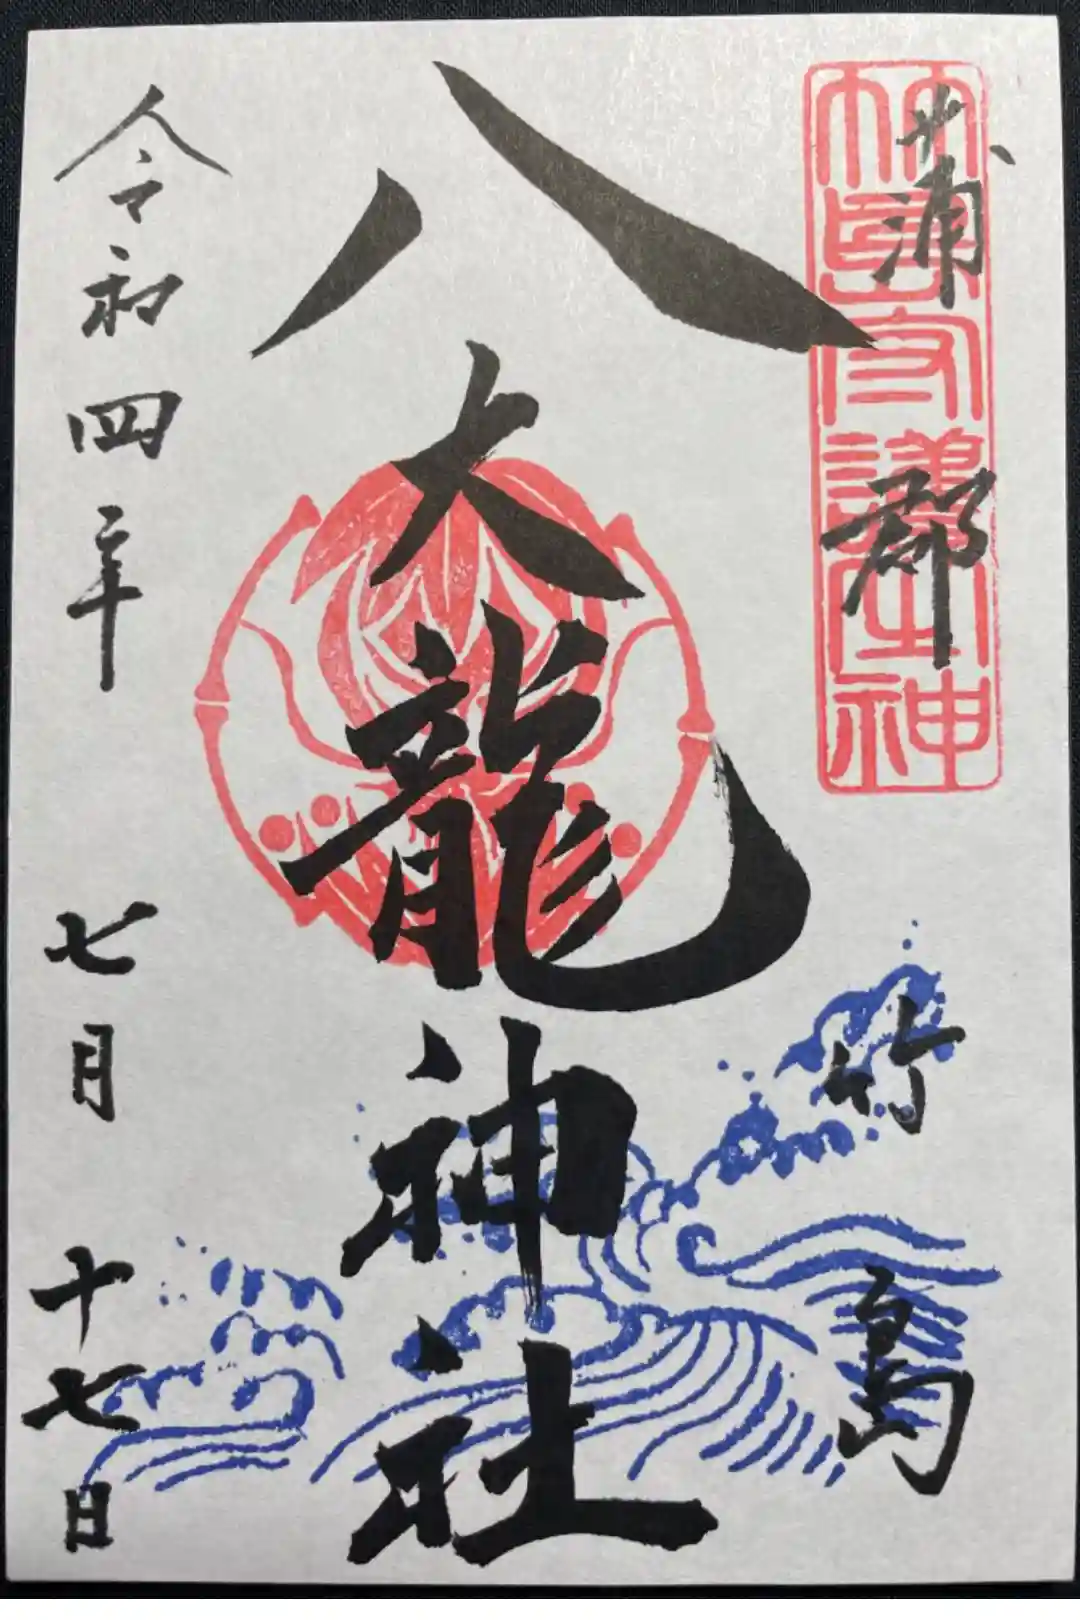 蒲郡 竹島
竹島守護之神
八大龍神社
令和四年 七月 十七日